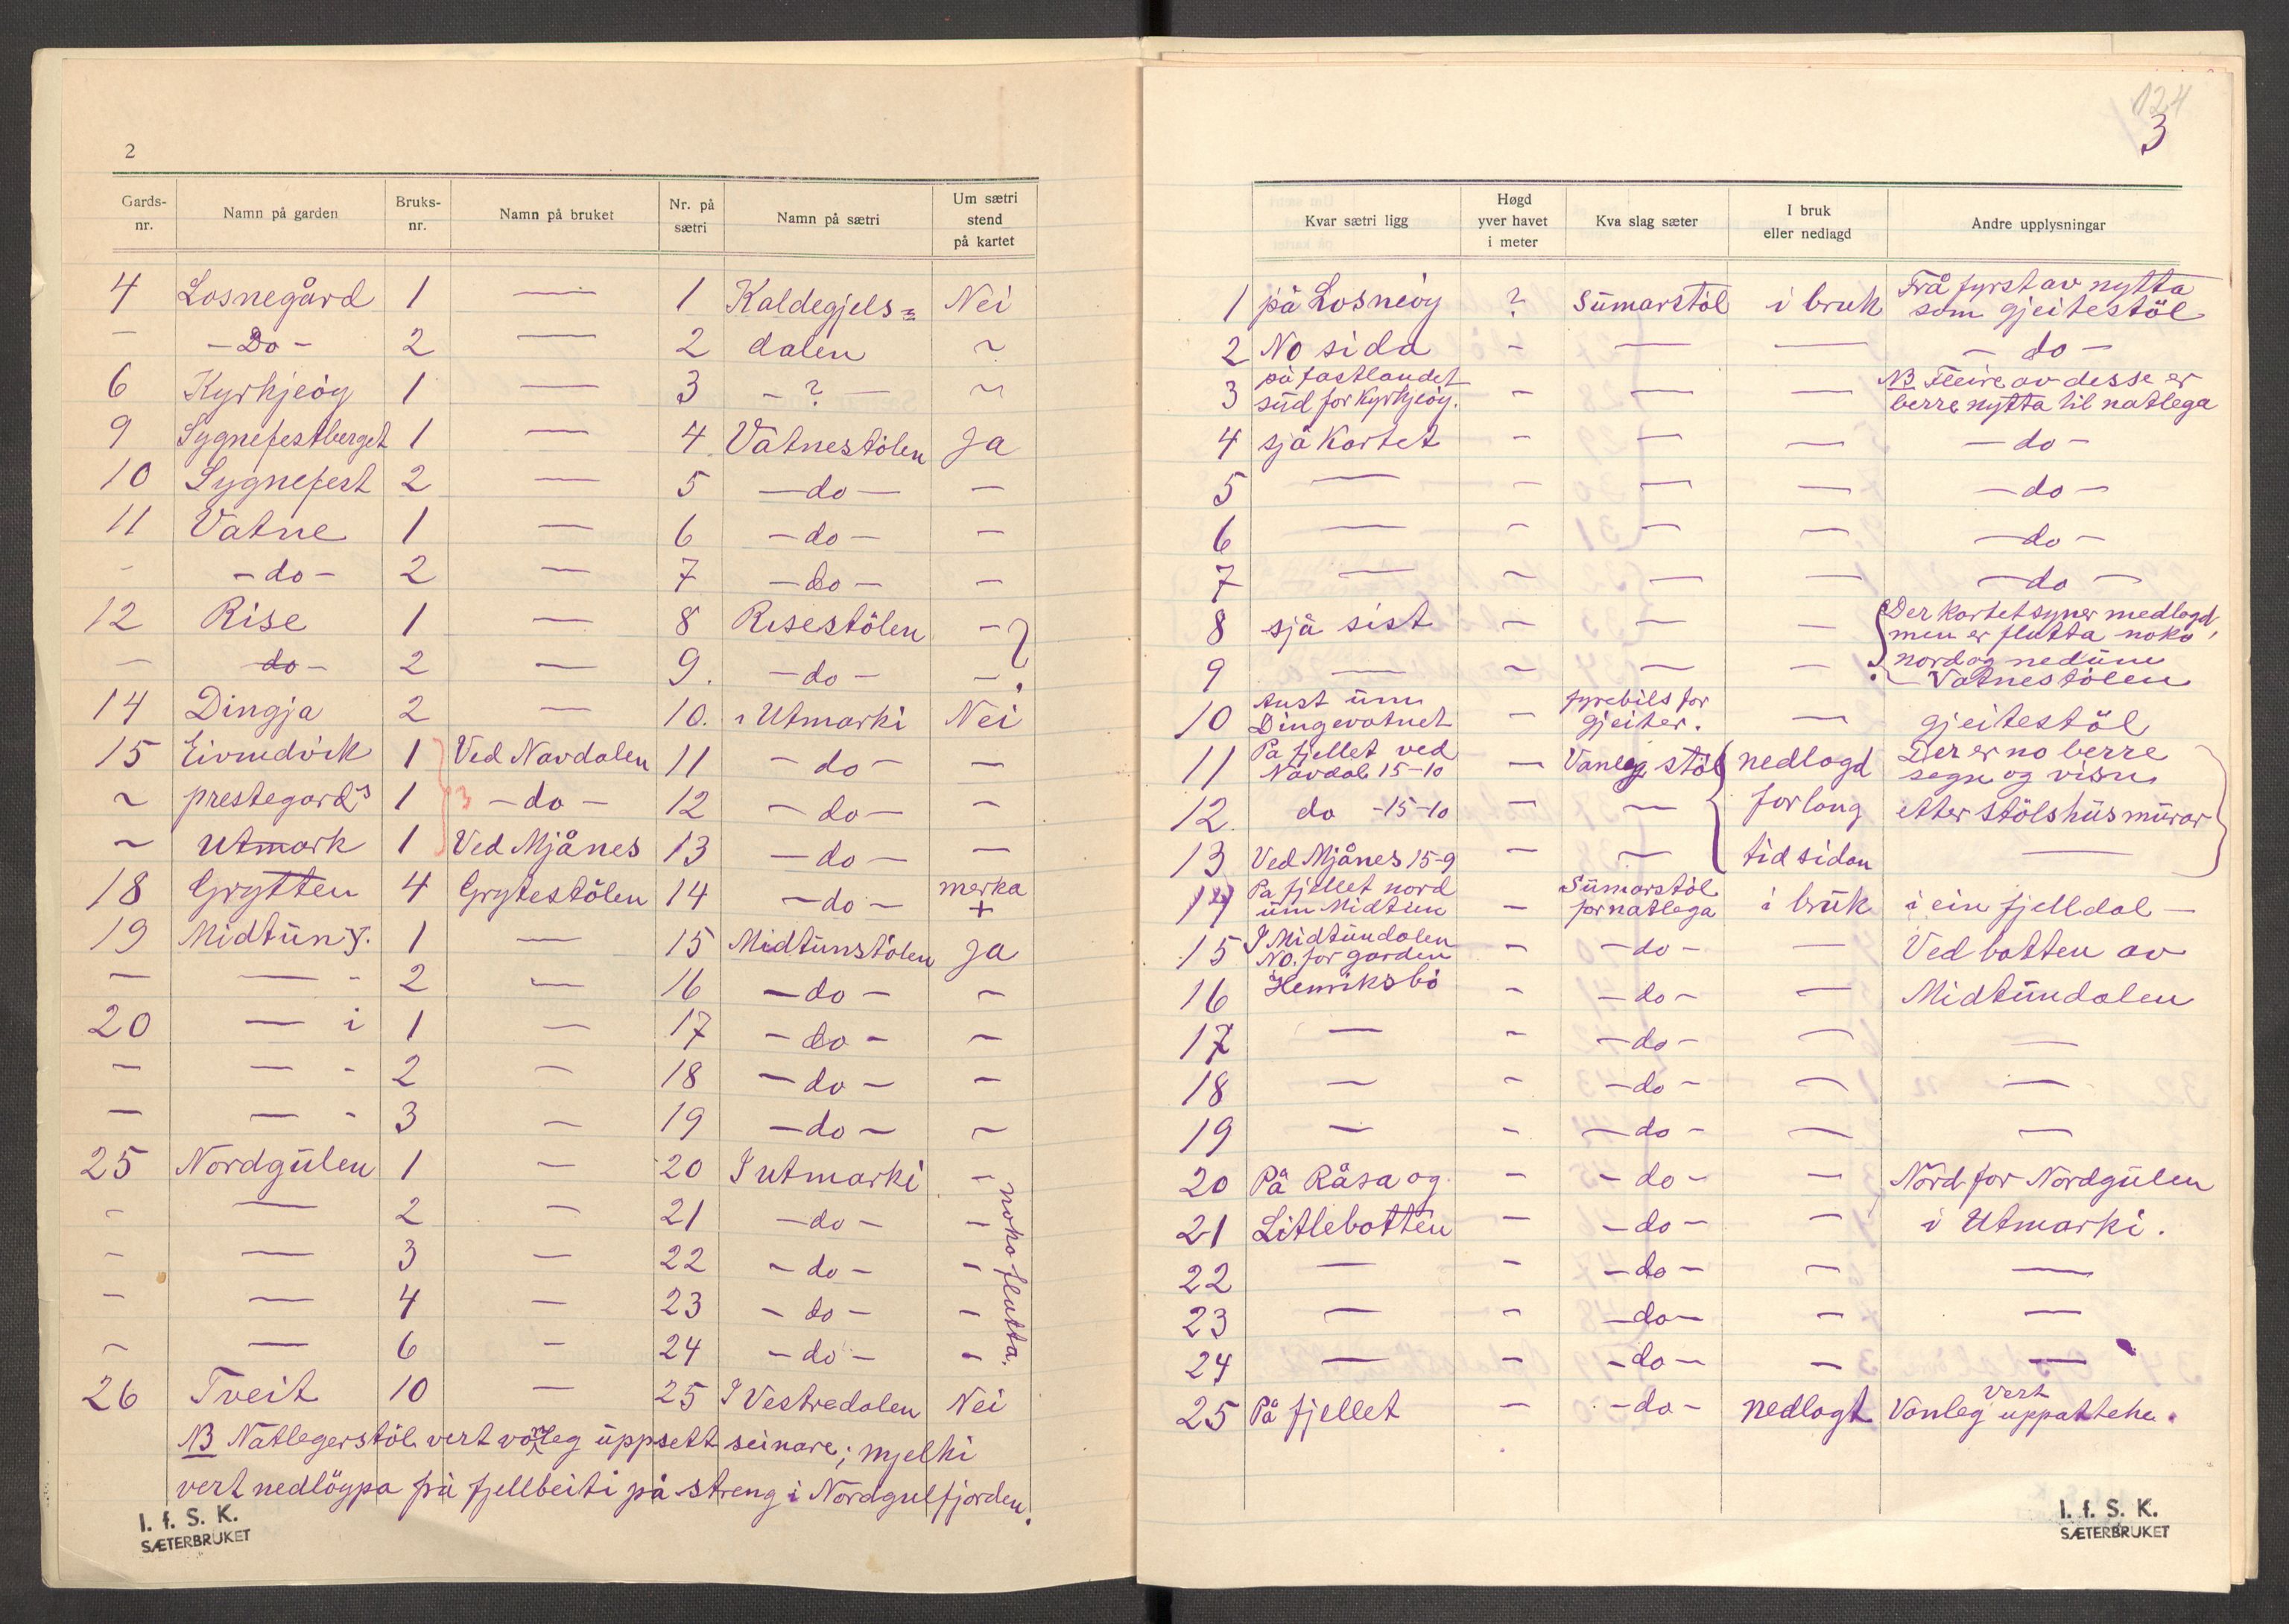 2
Gards-nr. Namn på garden Bruks-nr. Namn på bruket Nr. på sætri Namn på sætri Um sætri stend på kartet
4 Losnegård 1 — 1 Kaldegjels= Nei
— -Do- 2 — 2 dalen ~
6 Kyrkjeöy 1 — 3 - ? - ~
9 Sygnefestberget 1 — 4 Vatnestölen Ja
10 Sygnefest 2 — 5 —do— —
11 Vatne 1 — 6 —do— —
- -do- 2 — 7 —do— —
12 Rise 1 — 8 Risestölen —
— do- 2 — 9. —do— —
14 Dingja 2 — 10. i Utmarki Nei
15 Eivindvik 1 Ved Navdalen 11 —do— —
~ prestegards 1 3 —do— 12 —do— —
~ Utmark 1 Ved Mjånes 13 —do— —
18 Grytten 4 Grytestölen 14 —do— merka +
19 Midtun y. 1 — 15 Midtunstölen Ja
— — - 2 — 16 —do— ~
20 — i 1 — 17 —do— ~
— — - 2 — 18 —do— ~
— — - 3 — 19 —do— ~
25 Nordgulen 1 — 20 I utmarki -
- — 2 — 21 —do— -
- — 3 — 22 —do— -
- — 4 — 23 —do— -
~ — 6 — 24 —do— -
noko flutta.
26 Tveit 10 — 25 I Vestredalen Nei
NB Natlegerstöl vert vanleg uppsett seinare; mjelki
vert nedlöypa frå fjellbeiti på streng i Nordgulfjorden.
I. f. S. K.
SÆTERBRUKET
124
3
Kvar sætri ligg Høgd yver havet i meter Kva slag sæter I bruk eller nedlagd Andre upplysningar
1 på Losneöy ? Sumarstöl i bruk Frå fyrst av nytta som gjeitestöl
2 No sida - — — —do—
3 på fastlandet sud for Kyrkjeöy. - — — NB Fleire av desse er berre nytta til natlega
4 sjå Kartet - — — —do—
5 — - — — —do—
6 — - — — —do—
7 — ~ — — —do—
8 sjå sist - — — Der kartet syner nedlagd, men er flutta noko
9 — ~ — — nord og nedum Vatnestölen
10 Aust um Dingevatnet - fyrebils for gjeiter. — gjeitestöl
11 På fjellet ved Navdal 15-10 — Vanleg stöl nedlagd Der er no berre segn og visn
12. do -15-10 — — for lang etter stölshusmurar
13 Ved Mjånes 15-9 — — tid sidan —
14 På fjellet nord um Midtun — Sumarstöl for natlega i bruk i ein fjelldal —
15 I Midtundalen No. for garden - —do— — Ved botten av
16 Henriksbö - —do— — Midtundalen
17 — - —do— — —
18 — - —do— — —
19 — - —do— — —
20 På Råsa og - —do— — Nord for Nordgulen
21 Litlebotten — —do— — i Utmarki.
22 — - —do— — —
23 — - —do— — —
24 — — —do— — —
25 På fjellet — —do— nedlagt Vanleg vert uppatteke.
I. f. S. K.
SÆTERBRUKET